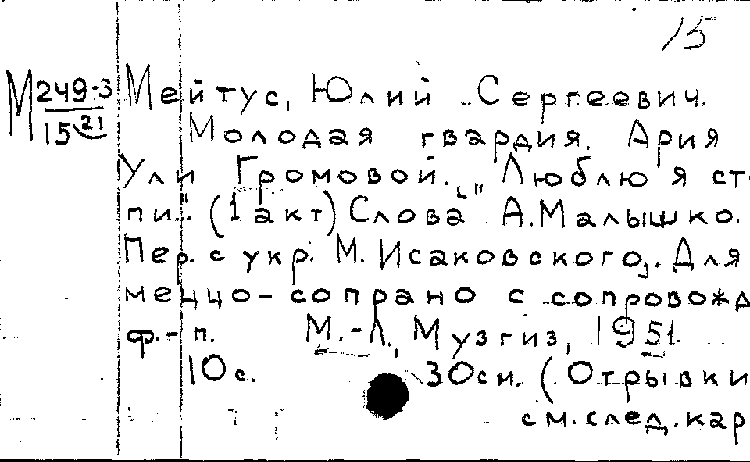 15
М249-3 Мейтус, Юлий Сергеевич.
15 21 Молодая гвардия. Ария
Ули Громовой. "Люблю я сте
пи". (1 акт) Слова А. Малышко.
Пер. с укр. М. Исаковского. Для
меццо-сопрано с сопровожд
ф.-п. М.-Л., Музгиз, 1951.
10с. 30см. (Отрывки
см. след. кар